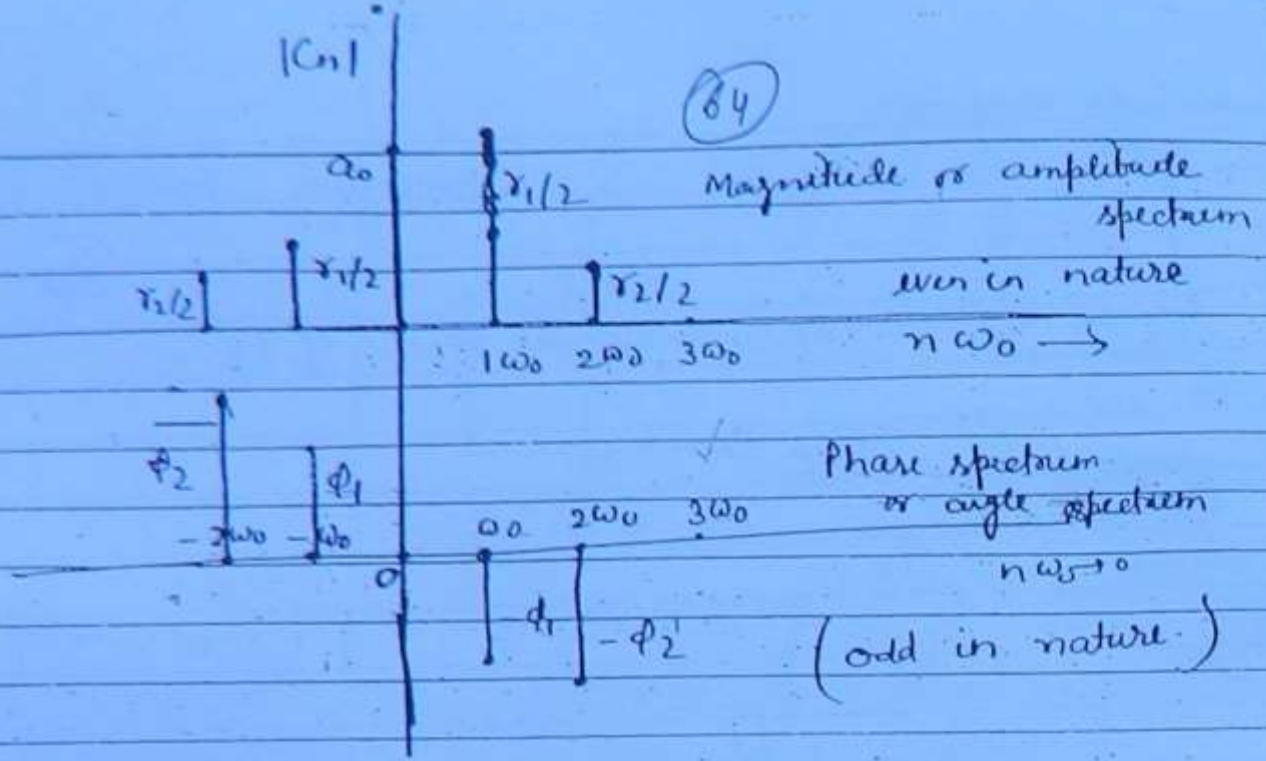 |Cn|
64
a0
r1/2
Magnitude or amplitude
spectrum
r2/2
r1/2
r2/2
even in nature
1ω0 2ω0 3ω0
nω0 →
φ2
φ1
Phase spectrum
or angle spectrum
-2ω0 -ω0
ω0 2ω0 3ω0
0
nω0→
φ1
-φ2
(odd in nature.)